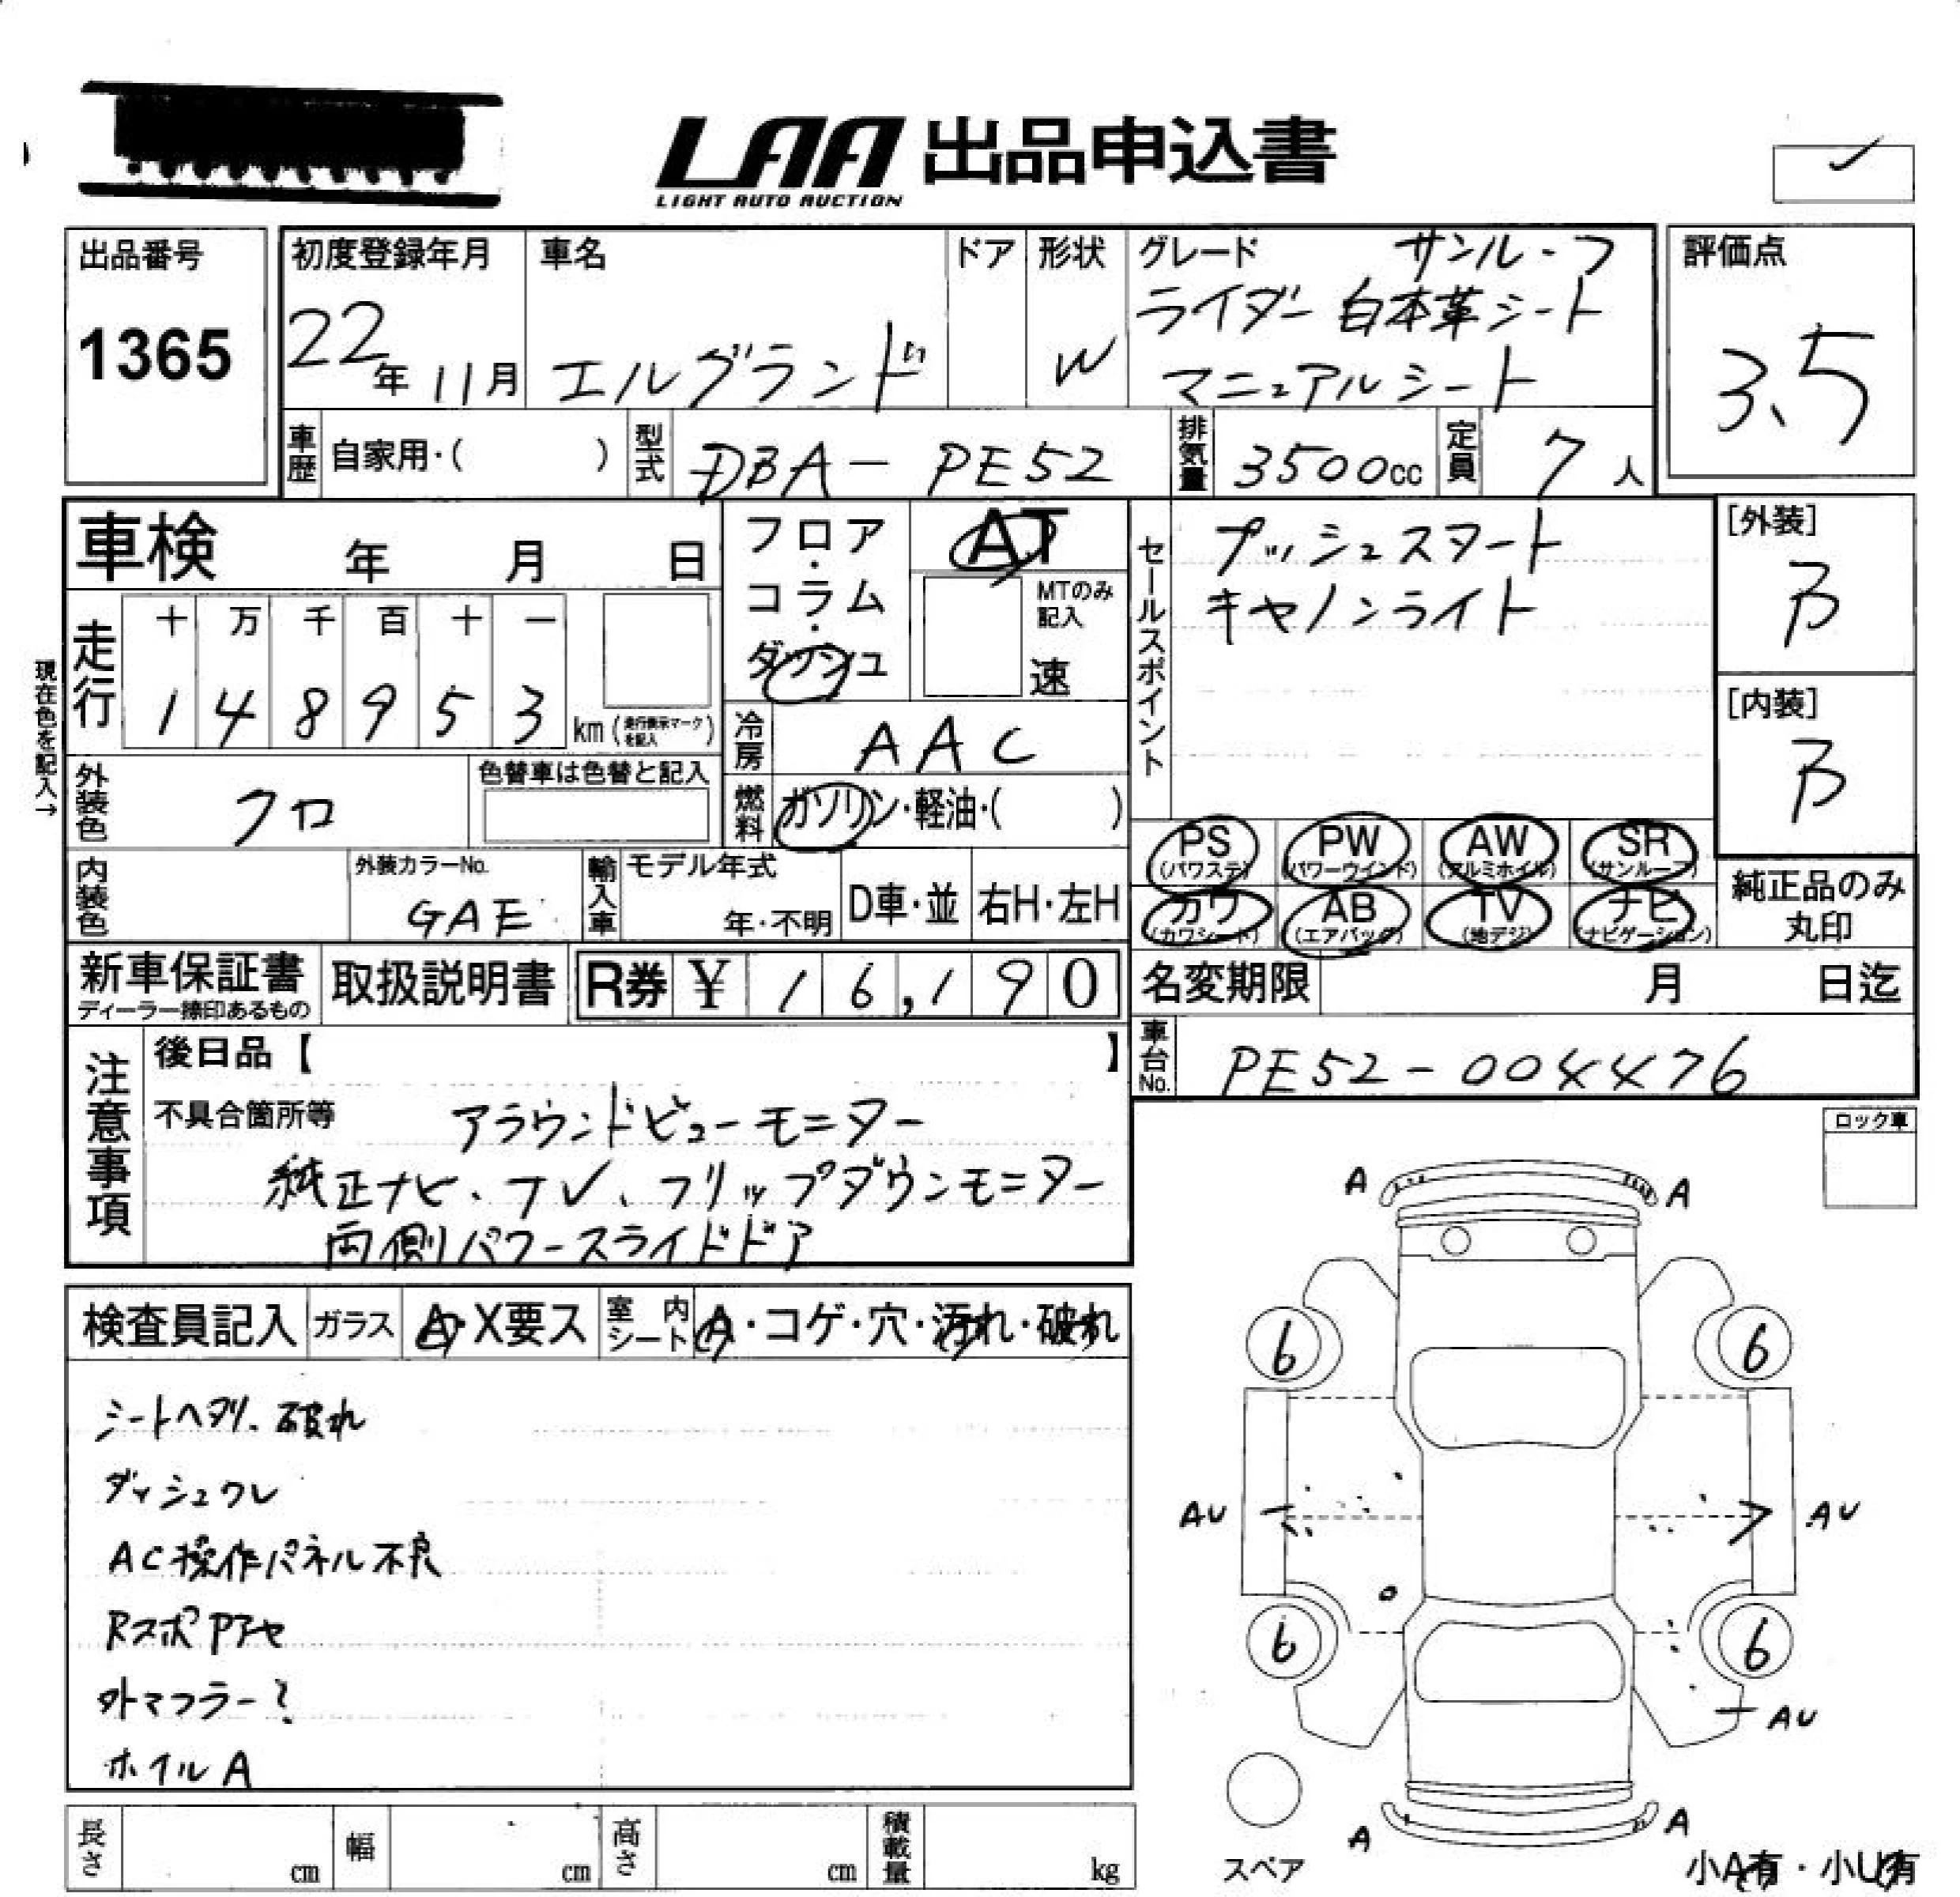 LAA 出品申込書
LIGHT AUTO AUCTION
出品番号
1365
初度登録年月
22年 11月
車名
エルグランド
ドア
形状
W
グレード サンルーフ
ライダー 白本革シート
マニュアルシート
評価点
3.5
車歴 自家用・( )
型式 DBA－PE52
排気量 3500cc
定員 7人
車検 年 月 日
フロア・コラム・ダッシュ
AT
MTのみ記入
速
セールスポイント
プッシュスタート
キャノンライト
[外装]
B
[内装]
B
現在色を記入→
走行
十 万 千 百 十 一
1 4 8 9 5 3 km (走行表示マークを記入)
冷房 AAC
外装色 クロ
色替車は色替と記入
燃料 ガソリン・軽油・( )
PS (パワステ) PW (パワーウインド) AW (アルミホイル) SR (サンルーフ)
カワ (カワシート) AB (エアバッグ) TV (地デジ) ナビ (ナビゲーション)
純正品のみ
丸印
内装色
外装カラーNo.
GAE
輸入車
モデル年式
年・不明
D車・並
右H・左H
新車保証書
ディーラー捺印あるもの
取扱説明書
R券 ¥ 16,190
名変期限 月 日迄
車台No. PE52－004476
注意事項
後日品【 】
不具合箇所等 アラウンドビューモニター
純正ナビ、TV、フリップダウンモニター
両側パワースライドドア
ロック車
検査員記入 ガラス A・X要ス 室内シート A・コゲ・穴・汚れ・破れ
シートヘタリ、破れ
ダッシュワレ
AC操作パネル不良
RスポPアセ
外マフラー?
ホイルA
A A
6 6
AU AU
6 6
AU
A A
スペア
小A有・小U有
長さ cm 幅 cm 高さ cm 積載量 kg